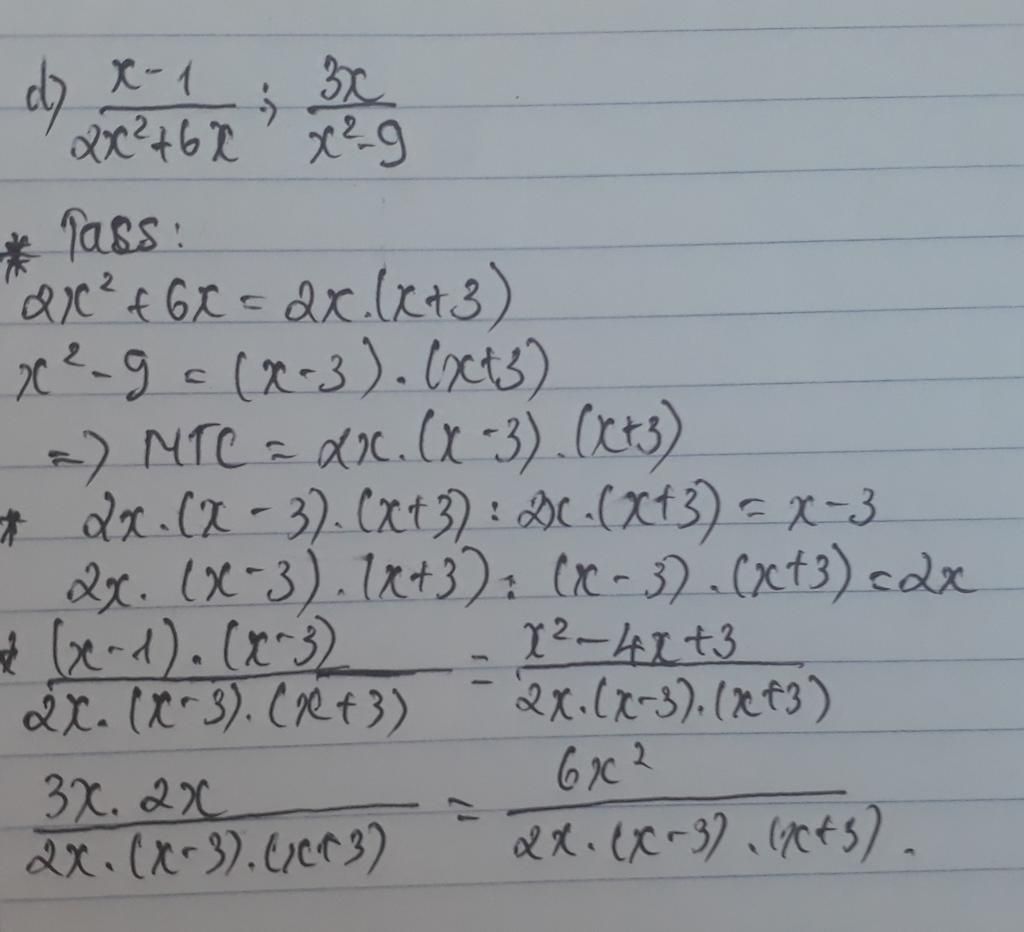 d) \frac{x-1}{2x²+6x} ; \frac{3x}{x²-9}
* Tass:
2x² + 6x = 2x.(x+3)
x² - 9 = (x-3).(x+3)
=> MTC = 2x.(x-3).(x+3)
* 2x.(x-3).(x+3) : 2x.(x+3) = x-3
2x.(x-3).(x+3) : (x-3).(x+3) = 2x
* \frac{(x-1).(x-3)}{2x.(x-3).(x+3)} = \frac{x²-4x+3}{2x.(x-3).(x+3)}
\frac{3x.2x}{2x.(x-3).(x+3)} = \frac{6x²}{2x.(x-3).(x+3)}.